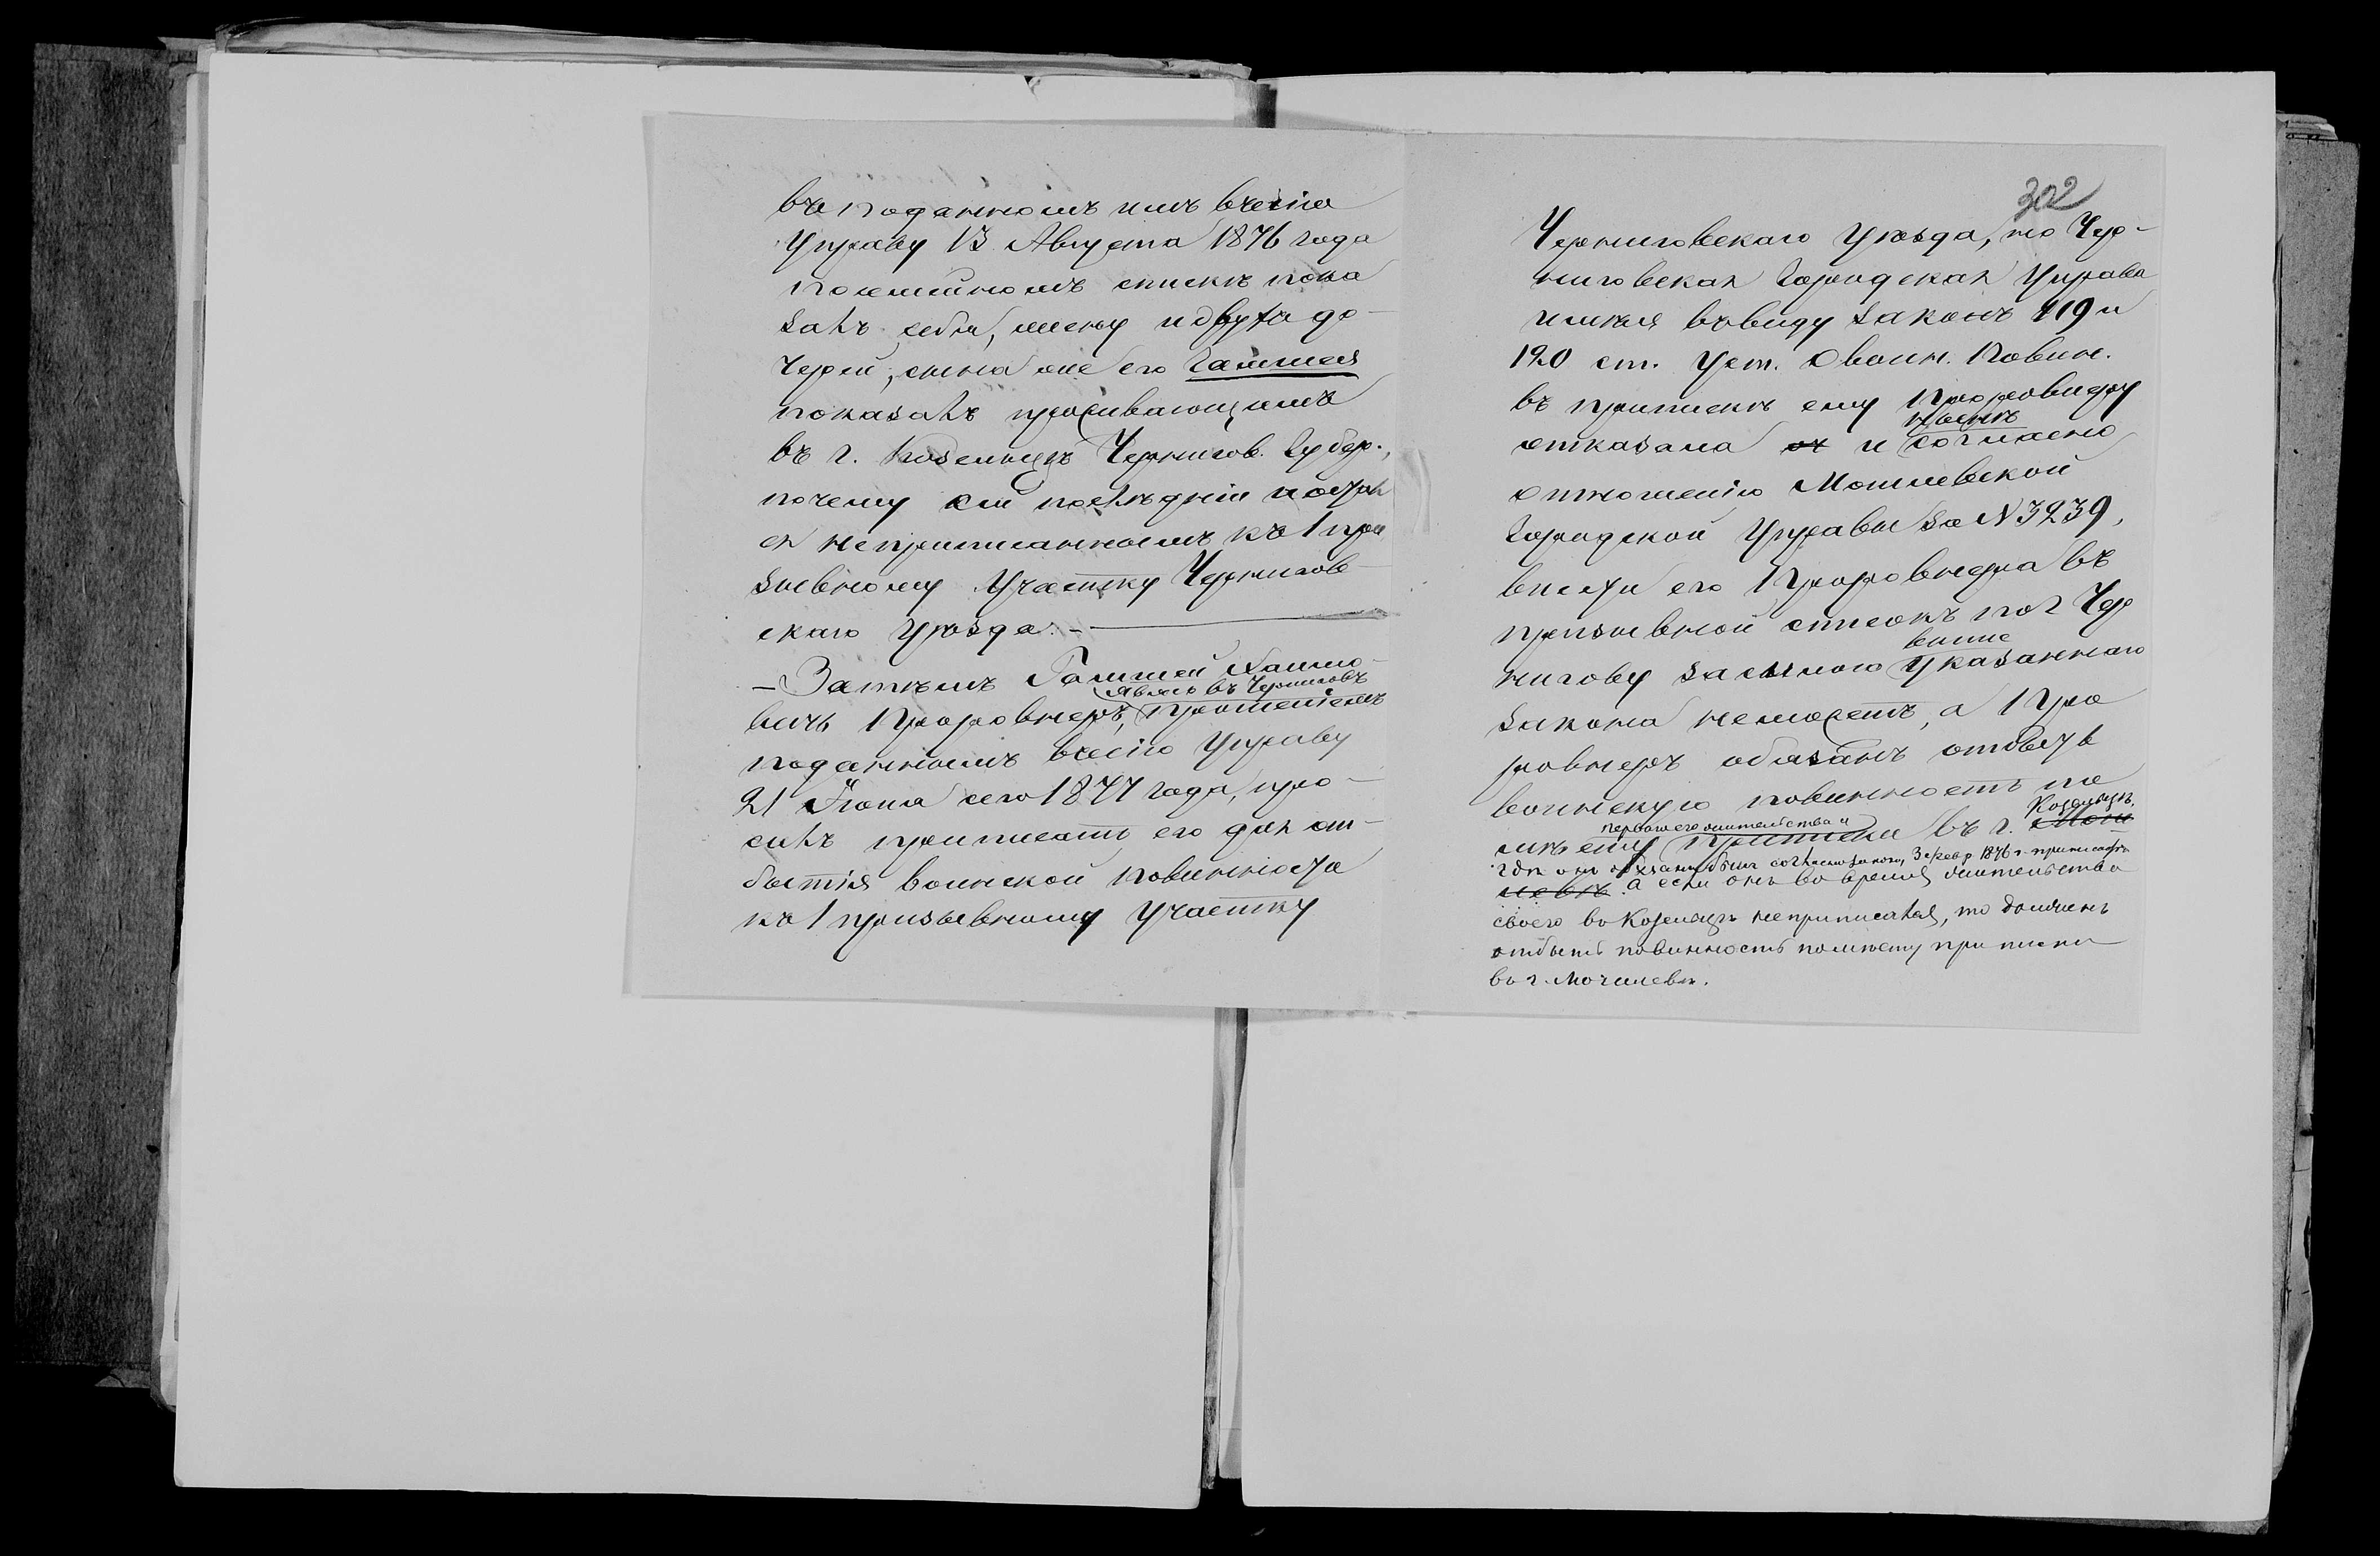 въ поданномъ имъ въ сію
Управу 13 Августа 1876 года
посемейномъ спискѣ пока
залъ себя, жену и двухъ до-
черей, сына же его Гамшея
показалъ проживающимъ
въ г. Козельцѣ Чернигов. Губер.,
почему сей послѣдній остал
ся неприписаннымъ къ 1 при
зывному Участку Черниго́в-
скаго Уѣзда. -
- Затѣмъ Гамшей Хаимо-
явясь въ Черниговъ
вичъ Проровнеръ, прошеніемъ
поданнымъ въ сію Управу
21 Іюня сего 1877 года, про-
силъ приписать его для от-
бытія воинской повинности
къ 1 призывному Участку
302
Черниговскаго Уѣзда, но Чер-
ниговская Городская Управа
имѣя въ виду законъ 119 и
120 ст. Уст. о воин. повин.
въ припискѣ ему Проровнеру
отказала и согласно
отношенію Могилевской
Городской Управы за № 3239,
внести его Проровнера въ
призывной списокъ по г. Чер
выше
нигову за силою указаннаго
закона неможетъ, а Про
ровнеръ обязанъ отбыть
воинскую повинность по
Козельцѣ,
перваго его жительства и
мѣсту приписки въ г. Моги
гдѣ онъ обязанъ былъ согласно закону, 3 февр 1876 г. приписаться
левѣ. а если онъ во время жительства
своего въ Козельцѣ неприписался, то долженъ
отбыть повинность по мѣсту приписки
въ г. Могилевѣ.